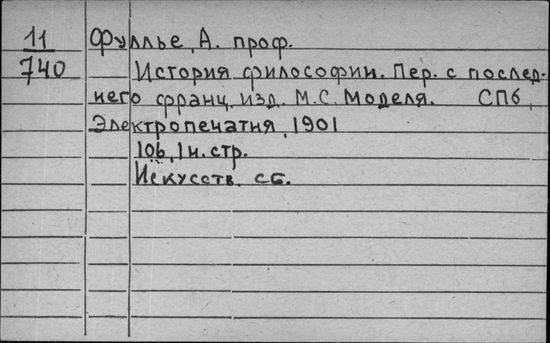 11 Фуллье, А. проф.
740 История философии. Пер. с послед-
него франц. изд. М.С. Моделя. СПб,
Электропечатня, 1901
106, 1 н. стр.
Искусств. сб.